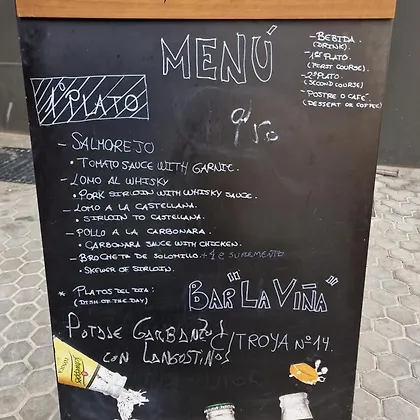 MENÚ
- BEBIDA
(DRINK).
- 1er PLATO.
(FIRST COURSE).
- 2º PLATO.
(SECOND COURSE)
- POSTRE O CAFÉ
(DESSERT OR COFFEE)
1º PLATO
9'50
- SALMOREJO
• TOMATO SAUCE WITH GARNIC.
- LOMO AL WHISKY
• PORK SIRLOIN WITH WHISKY SAUCE.
- LOMO A LA CASTELLANA.
• SIRLOIN TO CASTELLANA.
- POLLO A LA CARBONARA.
• CARBONARA SAUCE WITH CHICKEN.
- BROCHETA DE SOLOMILLO +1€ SUPLEMENTO
• SKEWER OF SIRLOIN.
* PLATOS DEL DIA:
(DISH OF THE DAY)
BAR "LA VIÑA"
POTAJE GARBANZOS
CON LANGOSTINOS
C/TROYA Nº 14.